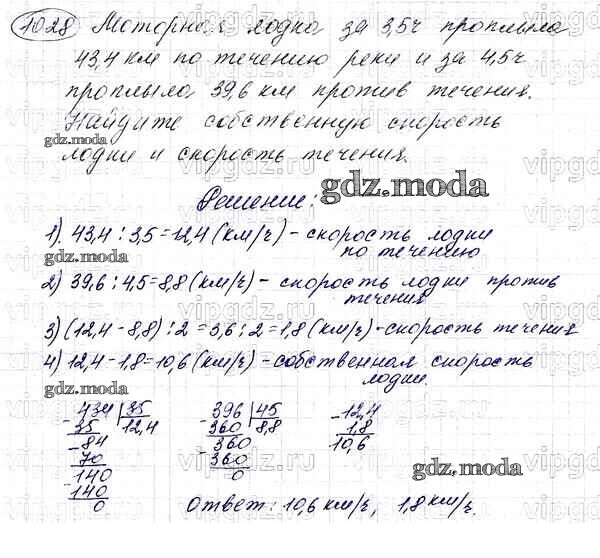 1028 Моторная лодка за 3,5ч проплыла
43,4 км по течению реки и за 4,5ч
проплыла 39,6 км против течения.
Найдите собственную скорость
лодки и скорость течения.
Решение:
gdz.moda
1) 43,4 : 3,5 = 12,4 (км/ч) - скорость лодки
по течению
gdz.moda
2) 39,6 : 4,5 = 8,8 (км/ч) - скорость лодки против
течения
3) (12,4 - 8,8) : 2 = 3,6 : 2 = 1,8 (км/ч) - скорость течения
4) 12,4 - 1,8 = 10,6 (км/ч) - собственная скорость
лодки.
gdz.moda
434 35
35 12,4
84
70
140
140
0
396 45
360 8,8
360
360
0
12,4
1,8
10,6
gdz.moda
Ответ: 10,6 км/ч, 1,8 км/ч.